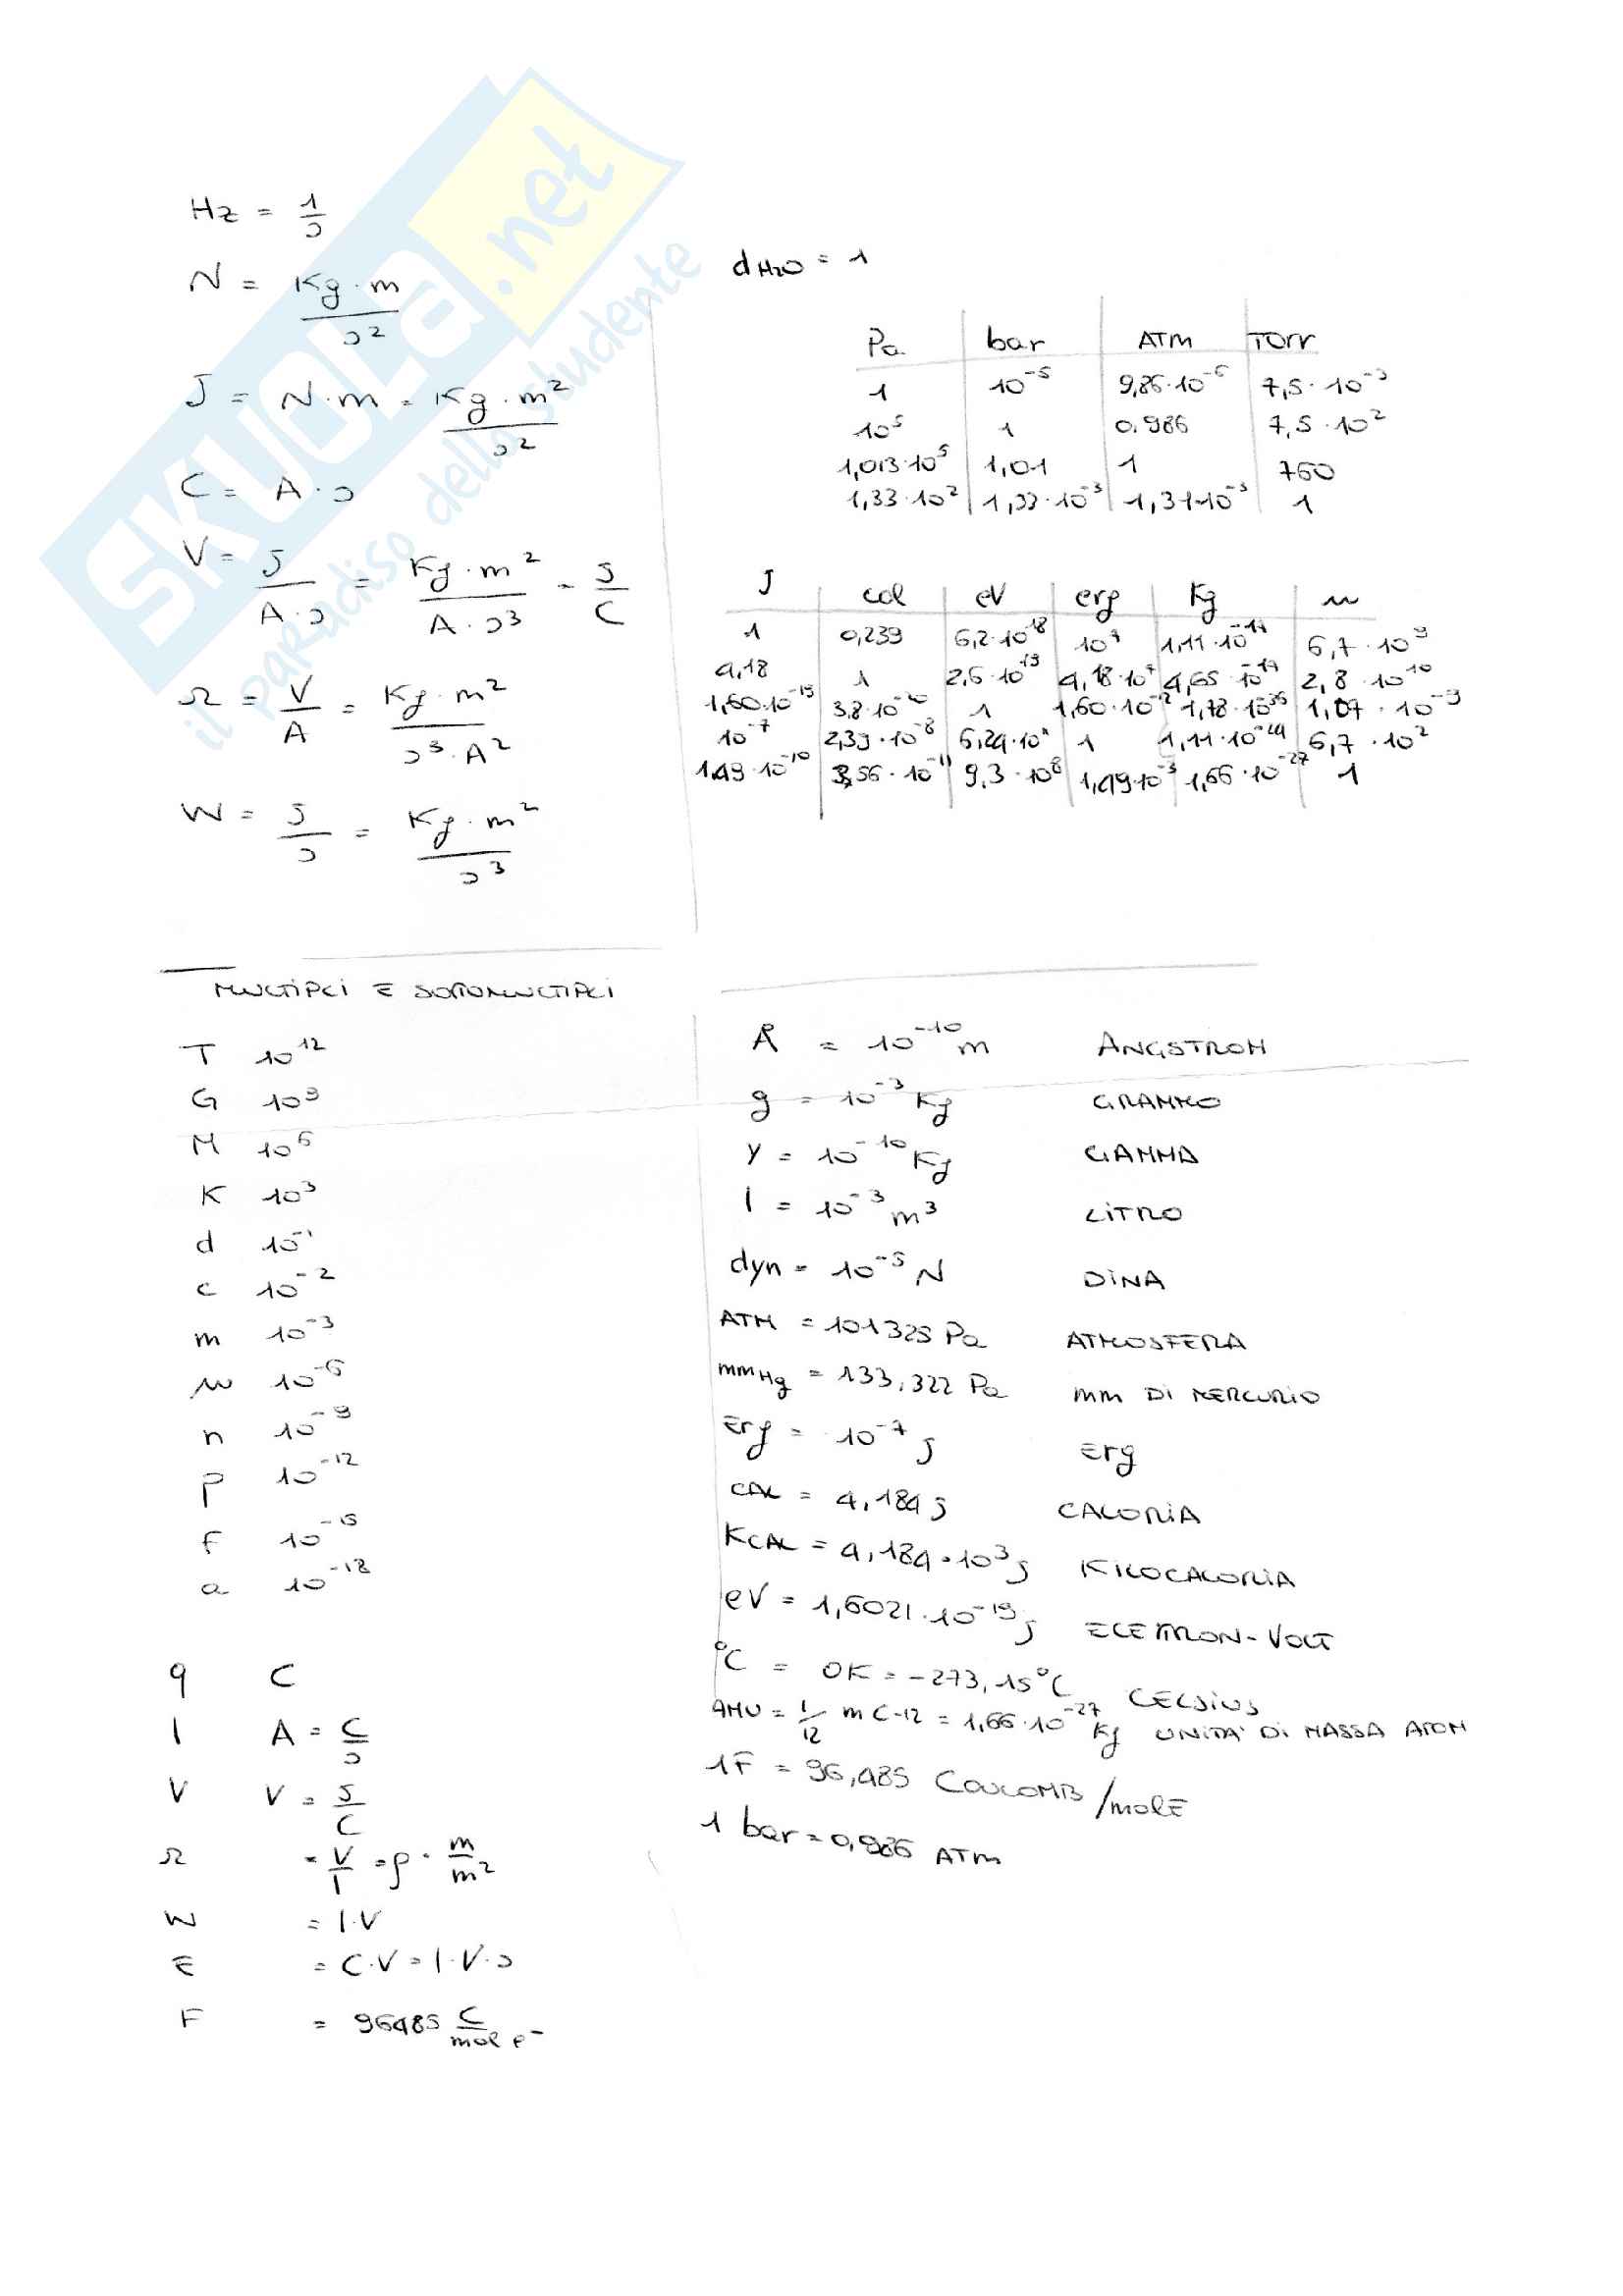 SKUOLA.net
il paradiso dello studente
Hz = 1/s
N = Kg · m / s²
J = N · m = Kg · m² / s²
C = A · s
V = J / A · s = Kg · m² / A · s³ = J / C
Ω = V / A = Kg · m² / s³ · A²
W = J / s = Kg · m² / s³
dH₂O = 1
Pa | bar | ATM | Torr
1 | 10⁻⁵ | 9,86·10⁻⁶ | 7,5 · 10⁻³
10⁵ | 1 | 0.986 | 7,5 · 10²
1,013·10⁵ | 1,01 | 1 | 760
1,33·10² | 1,33·10⁻³ | 1,31·10⁻³ | 1
J | cal | eV | erg | Kg | u
1 | 0,239 | 6,2·10¹⁸ | 10⁷ | 1,11·10⁻¹⁷ | 6,7 · 10⁹
4,18 | 1 | 2,6·10¹⁹ | 4,18·10⁷ | 4,65·10⁻¹⁷ | 2,8 · 10¹⁰
1,60·10⁻¹⁹ | 3,8·10⁻²⁰ | 1 | 1,60·10⁻¹² | 1,78·10⁻³⁶ | 1,07 · 10⁻⁹
10⁻⁷ | 2,39·10⁻⁸ | 6,24·10¹¹ | 1 | 1,11·10⁻²⁴ | 6,7 · 10²
1,49·10⁻¹⁰ | 3,56·10⁻¹¹ | 9,3 · 10⁸ | 1,49·10⁻³ | 1,66·10⁻²⁷ | 1
MULTIPLI E SOTTOMULTIPLI
T 10¹²
G 10⁹
M 10⁶
K 10³
d 10⁻¹
c 10⁻²
m 10⁻³
μ 10⁻⁶
n 10⁻⁹
p 10⁻¹²
f 10⁻¹⁵
a 10⁻¹⁸
q C
I A = C/s
V V = J/C
Ω = V/I = ρ · m/m²
W = I·V
E = C·V = I·V·s
F = 96485 C/mol e⁻
Å = 10⁻¹⁰ m ANGSTROM
g = 10⁻³ Kg GRAMMO
γ = 10⁻¹⁰ Kg GAMMA
l = 10⁻³ m³ LITRO
dyn = 10⁻⁵ N DINA
ATM = 101325 Pa ATMOSFERA
mmHg = 133,322 Pa MM DI MERCURIO
Erg = 10⁻⁷ J Erg
CAL = 4,184 J CALORIA
KCAL = 4,184·10³ J KILOCALORIA
eV = 1,6021·10⁻¹⁹ J ELETTRON-VOLT
°C = 0K = -273,15°C CELSIUS
AMU = 1/12 m C-12 = 1,66·10⁻²⁷ Kg UNITA' DI MASSA ATOM
1F = 96,485 COULOMB/MOLE
1 bar = 0,986 ATM